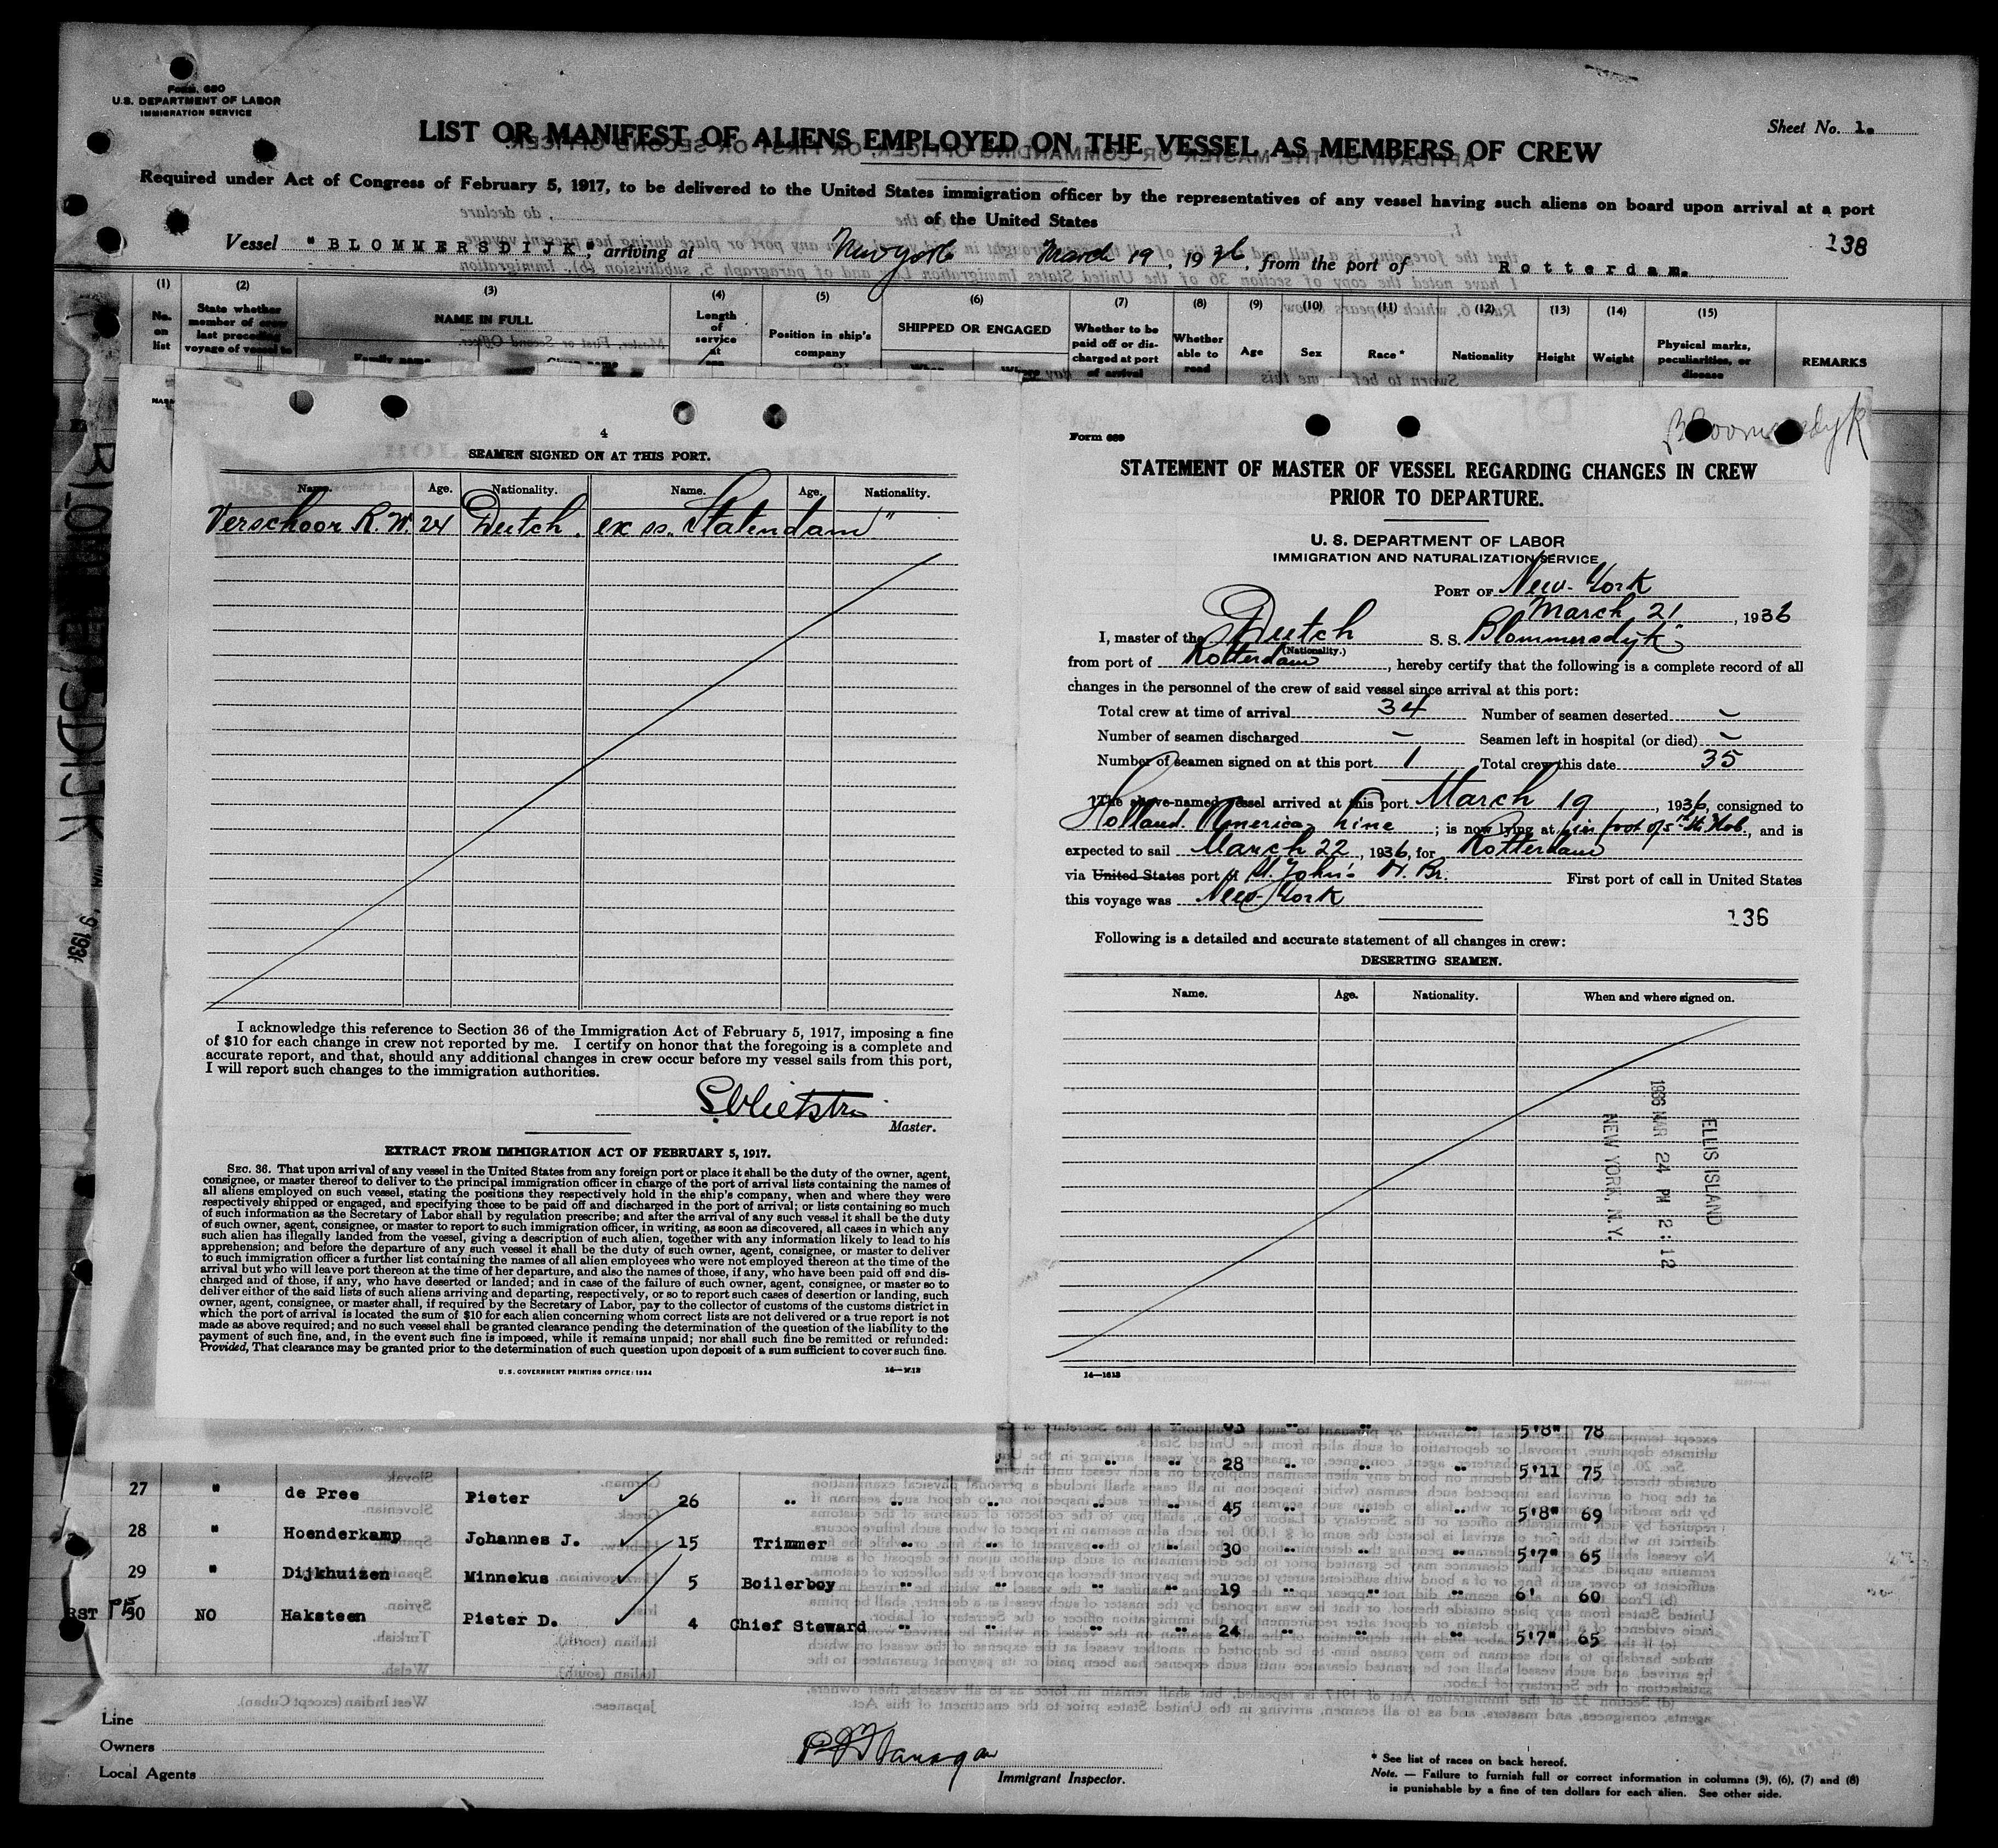 Form 680
U.S. DEPARTMENT OF LABOR
IMMIGRATION SERVICE
Sheet No. 1.
LIST OR MANIFEST OF ALIENS EMPLOYED ON THE VESSEL AS MEMBERS OF CREW
Required under Act of Congress of February 5, 1917, to be delivered to the United States immigration officer by the representatives of any vessel having such aliens on board upon arrival at a port
of the United States
138
Vessel "BLOMMERSDIJK", arriving at New York March 19, 1936, from the port of Rotterdam.
(1) (2) (3) (4) (5) (6) (7) (8) (9) (10) (11) (12) (13) (14) (15)
No. on list
State whether member of crew last preceding voyage of vessel to
NAME IN FULL
Family name
Given name
Length of service at sea
Position in ship's company
SHIPPED OR ENGAGED
When Where
Whether to be paid off or discharged at port of arrival
Whether able to read
Age Sex Race* Nationality Height Weight
Physical marks, peculiarities, or disease
REMARKS
BLOMMERSDIJK
4
SEAMEN SIGNED ON AT THIS PORT.
Name. Age. Nationality. Name. Age. Nationality.
Verschoor R.W. 24 Dutch. ex ss. Statendam"
I acknowledge this reference to Section 36 of the Immigration Act of February 5, 1917, imposing a fine
of $10 for each change in crew not reported by me. I certify on honor that the foregoing is a complete and
accurate report, and that, should any additional changes in crew occur before my vessel sails from this port,
I will report such changes to the immigration authorities.
Master.
EXTRACT FROM IMMIGRATION ACT OF FEBRUARY 5, 1917.
SEC. 36. That upon arrival of any vessel in the United States from any foreign port or place it shall be the duty of the owner, agent,
consignee, or master thereof to deliver to the principal immigration officer in charge of the port of arrival lists containing the names of
all aliens employed on such vessel, stating the positions they respectively hold in the ship's company, when and where they were
respectively shipped or engaged, and specifying those to be paid off and discharged in the port of arrival; or lists containing so much
of such information as the Secretary of Labor shall by regulation prescribe; and after the arrival of any such vessel it shall be the duty
of such owner, agent, consignee, or master to report to such immigration officer, in writing, as soon as discovered, all cases in which any
such alien has illegally landed from the vessel, giving a description of such alien, together with any information likely to lead to his
apprehension; and before the departure of any such vessel it shall be the duty of such owner, agent, consignee, or master to deliver
to such immigration officer a further list containing the names of all alien employees who were not employed thereon at the time of the
arrival but who will leave port thereon at the time of her departure, and also the names of those, if any, who have been paid off and dis-
charged and of those, if any, who have deserted or landed; and in case of the failure of such owner, agent, consignee, or master so to
deliver either of the said lists of such aliens arriving and departing, respectively, or so to report such cases of desertion or landing, such
owner, agent, consignee, or master shall, if required by the Secretary of Labor, pay to the collector of customs of the customs district in
which the port of arrival is located the sum of $10 for each alien concerning whom correct lists are not delivered or a true report is not
made as above required; and no such vessel shall be granted clearance pending the determination of the question of the liability to the
payment of such fine, and, in the event such fine is imposed, while it remains unpaid; nor shall such fine be remitted or refunded:
Provided, That clearance may be granted prior to the determination of such question upon deposit of a sum sufficient to cover such fine.
U.S. GOVERNMENT PRINTING OFFICE: 1934
Form 689
STATEMENT OF MASTER OF VESSEL REGARDING CHANGES IN CREW
PRIOR TO DEPARTURE.
U. S. DEPARTMENT OF LABOR
IMMIGRATION AND NATURALIZATION SERVICE
PORT OF New-York
March 21, 1936
I, master of the Dutch S. S. Blommersdyk"
(Nationality.)
from port of Rotterdam, hereby certify that the following is a complete record of all
changes in the personnel of the crew of said vessel since arrival at this port:
Total crew at time of arrival 34 Number of seamen deserted –
Number of seamen discharged – Seamen left in hospital (or died) –
Number of seamen signed on at this port 1 Total crew this date 35
The above-named vessel arrived at this port March 19, 1936, consigned to
Holland America Line; is now lying at pier foot of 5th St. Hob., and is
expected to sail March 22, 1936, for Rotterdam
via United States port of St. John's N. Br. First port of call in United States
this voyage was New-York
136
Following is a detailed and accurate statement of all changes in crew:
DESERTING SEAMEN.
Name. Age. Nationality. When and where signed on.
ELLIS ISLAND
1936 MAR 24 PM 2:12
NEW YORK, N.Y.
14—1613
" " " 5'8" 78
" " 28 " " " 5'11 75
27 " de Pree Pieter 26 " " " " " 45 " " " 5'8" 69
28 " Hoenderkamp Johannes J. 15 Trimmer " " " " 30 " " " 5'7" 65
29 " Dijkhuizen Minnekus 5 Boilerboy " " " " 19 " " " 6' 60
30 NO Haksteen Pieter D. 4 Chief Steward " " " " 24 " " " 5'7" 65
Line
Owners
Local Agents
Immigrant Inspector.
* See list of races on back hereof.
Note. — Failure to furnish full or correct information in columns (3), (6), (7) and (8)
is punishable by a fine of ten dollars for each alien. See other side.